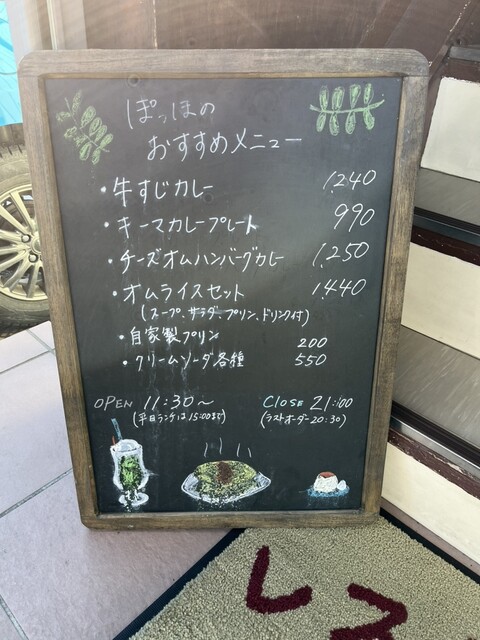 ぽっぽの
おすすめメニュー
・牛すじカレー 1,240
・キーマカレープレート 990
・チーズオムハンバーグカレー 1,250
・オムライスセット 1,440
(スープ、サラダ、プリン、ドリンク付)
・自家製プリン 200
・クリームソーダ各種 550
OPEN 11:30～ CLOSE 21:00
(平日ランチは15:00まで) (ラストオーダー20:30)
レス